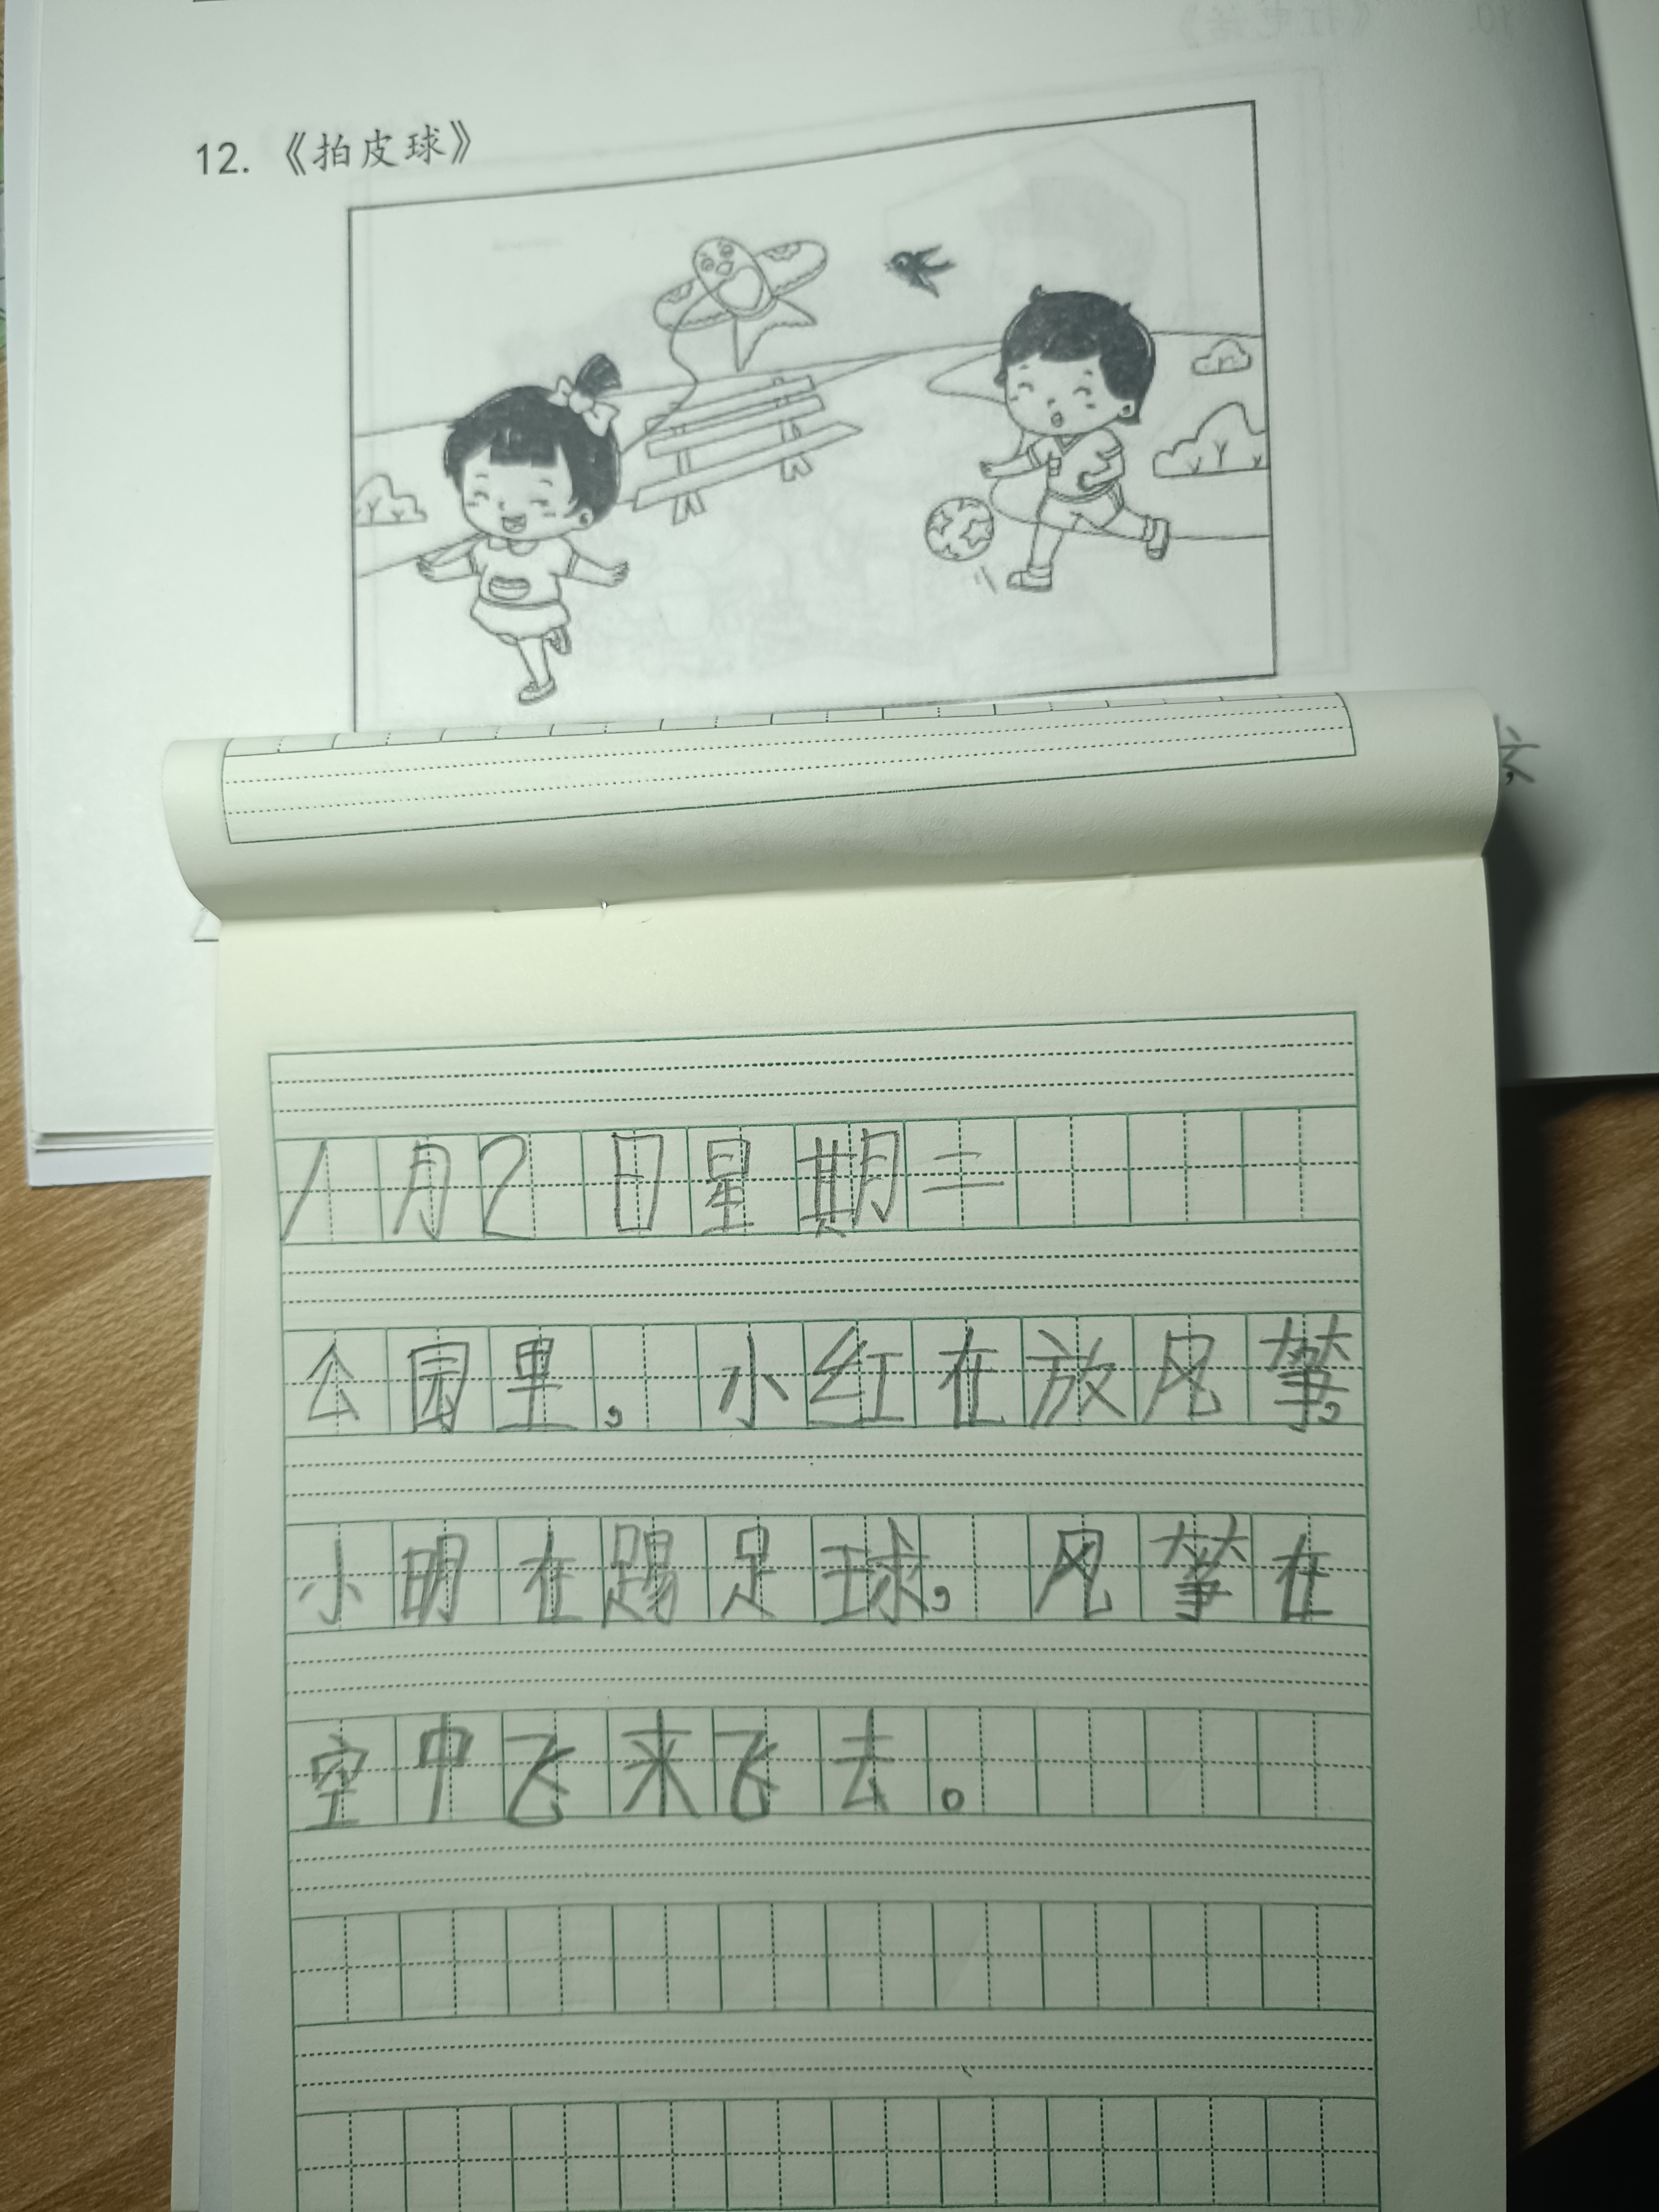 12.《拍皮球》
1月2日星期二
公园里，小红在放风筝，
小明在踢足球，风筝在
空中飞来飞去。